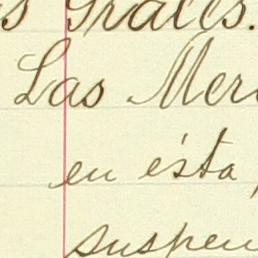 s Grales.
Las Mer
en ésta,
suspen